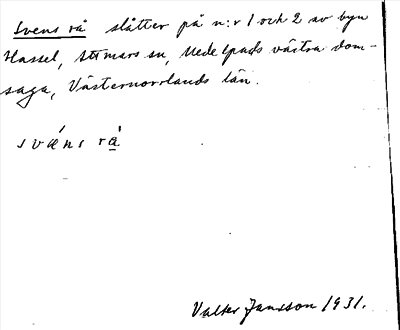 Svens rå slåtter på n:r 1 och 2 av byn
Hassel, Attmars sn, Medelpads västra dom-
saga, Västernorrlands län.
svǽns rå̀
Valter Jansson 1931.